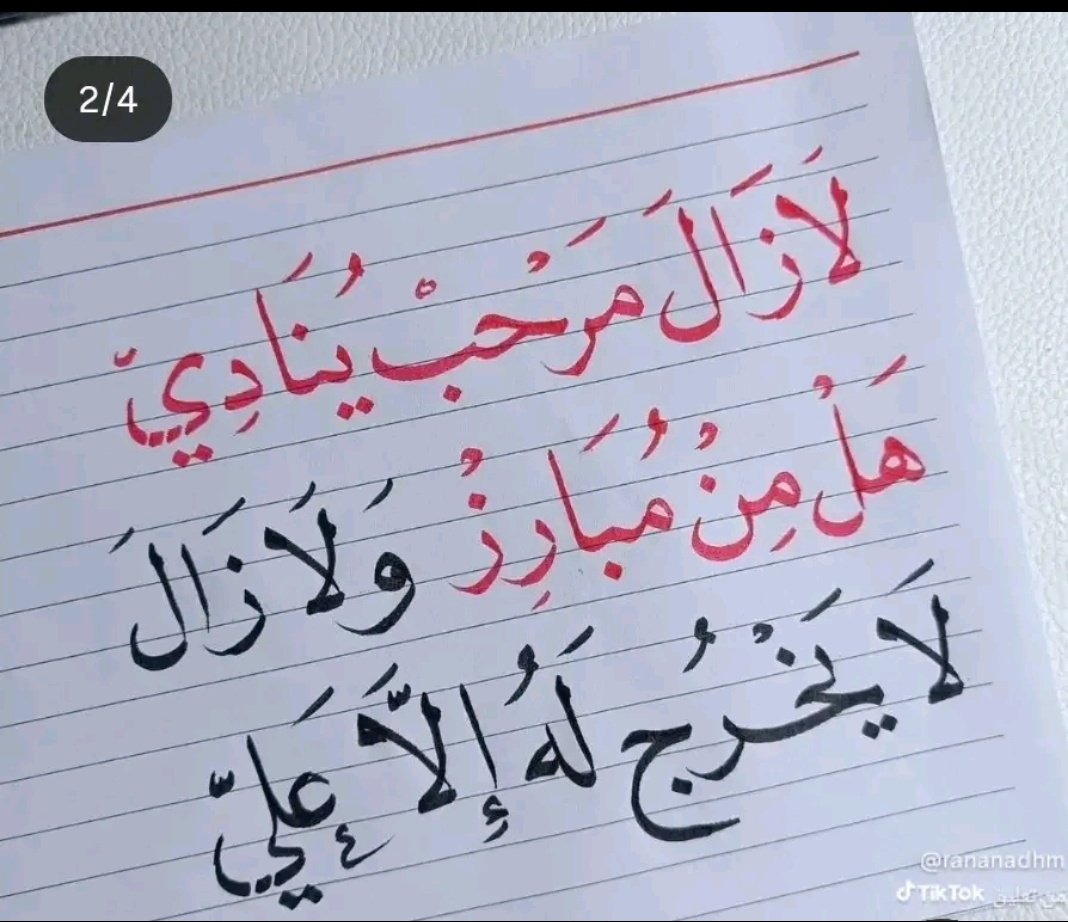 2/4
لَازَالَ مَرْحَبْ يُنَادِيّ
هَلْ مِنْ مُبَارِزْ وَلَازَالَ
لَا يَخْرُج لَهُ إِلَّا عَلِيّ
@rananadhm
TikTok